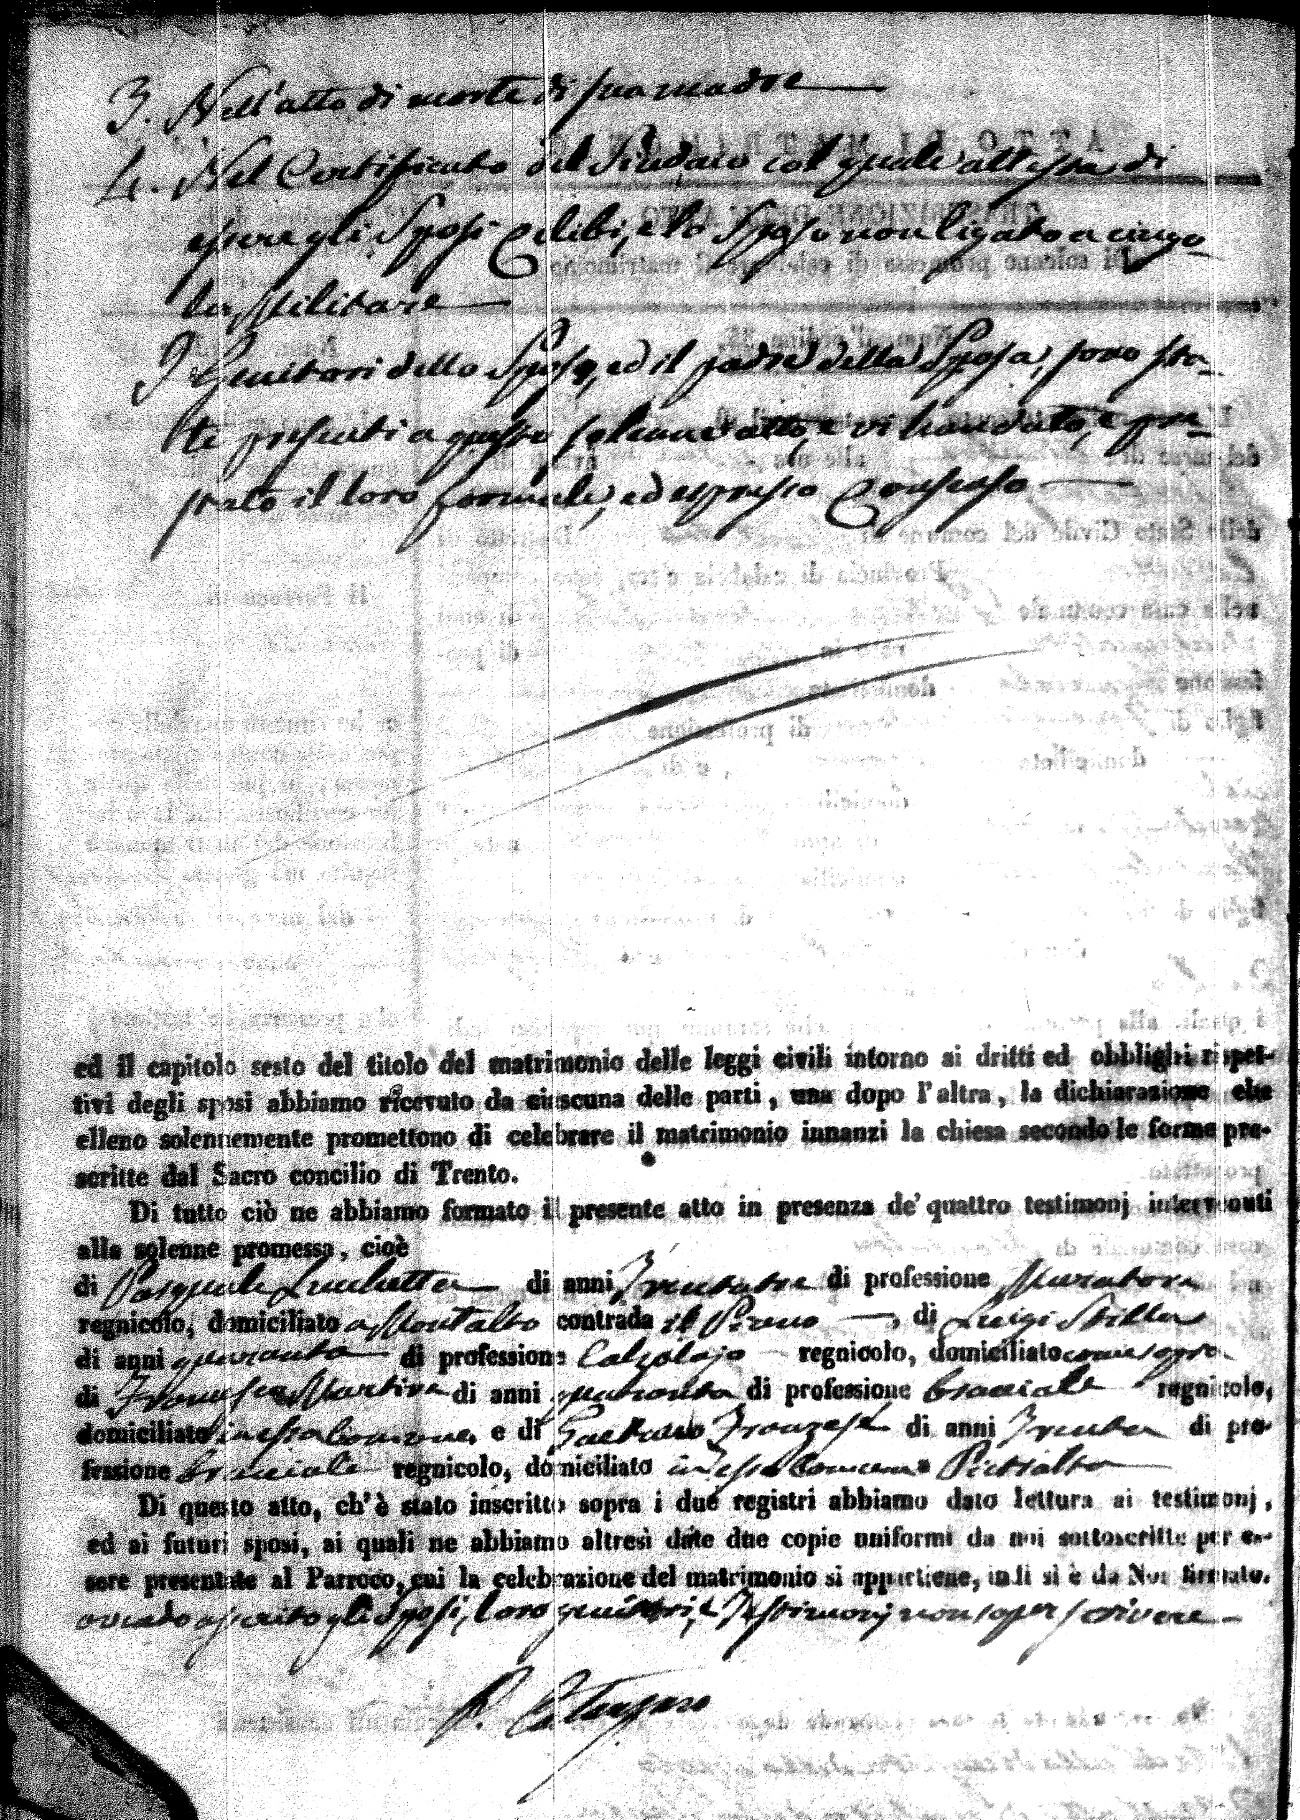 3. Nell'atto di morte di sua madre
4. Nel Certificato del Sindaco col quale attessa di
essere gli Sposi Celibi, e lo Sposo non ligato a cingo-
lo Militare
I Genitori dello Sposo, ed il padre della Sposa, sono sta-
ti presenti a questo solenne atto, e vi han dato, e pre-
stato il loro formale, ed espresso Consenso
ed il capitolo sesto del titolo del matrimonio delle leggi civili intorno ai dritti ed obblighi rispet-
tivi degli sposi abbiamo ricevuto da ciascuna delle parti, una dopo l'altra, la dichiarazione che
elleno solennemente promettono di celebrare il matrimonio innanzi la chiesa secondo le forme pre-
scritte dal Sacro concilio di Trento.
Di tutto ciò ne abbiamo formato il presente atto in presenza de' quattro testimonj intervenuti
alla solenne promessa, cioè
di Pasquale Luchetta di anni Trentatre di professione Muratore
regnicolo, domiciliato a Montalto contrada il Piano, di Luigi Stilla
di anni quaranta di professione Calzolajo regnicolo, domiciliato come sopra
di Francesco Martire di anni quaranta di professione bracciale regnicolo,
domiciliato in essa Comune, e di Gaetano Franzese di anni Trenta di pro-
fessione bracciale regnicolo, domiciliato in essa Comune Pietralta
Di questo atto, ch'è stato inscritto sopra i due registri abbiamo dato lettura ai testimonj,
ed ai futuri sposi, ai quali ne abbiamo altresì date due copie uniformi da noi sottoscritte per es-
sere presentate al Parroco, cui la celebrazione del matrimonio si appartiene, indi si è da Noi firmato.
avendo asserito gli Sposi, loro genitori, e Testimonj non saper scrivere